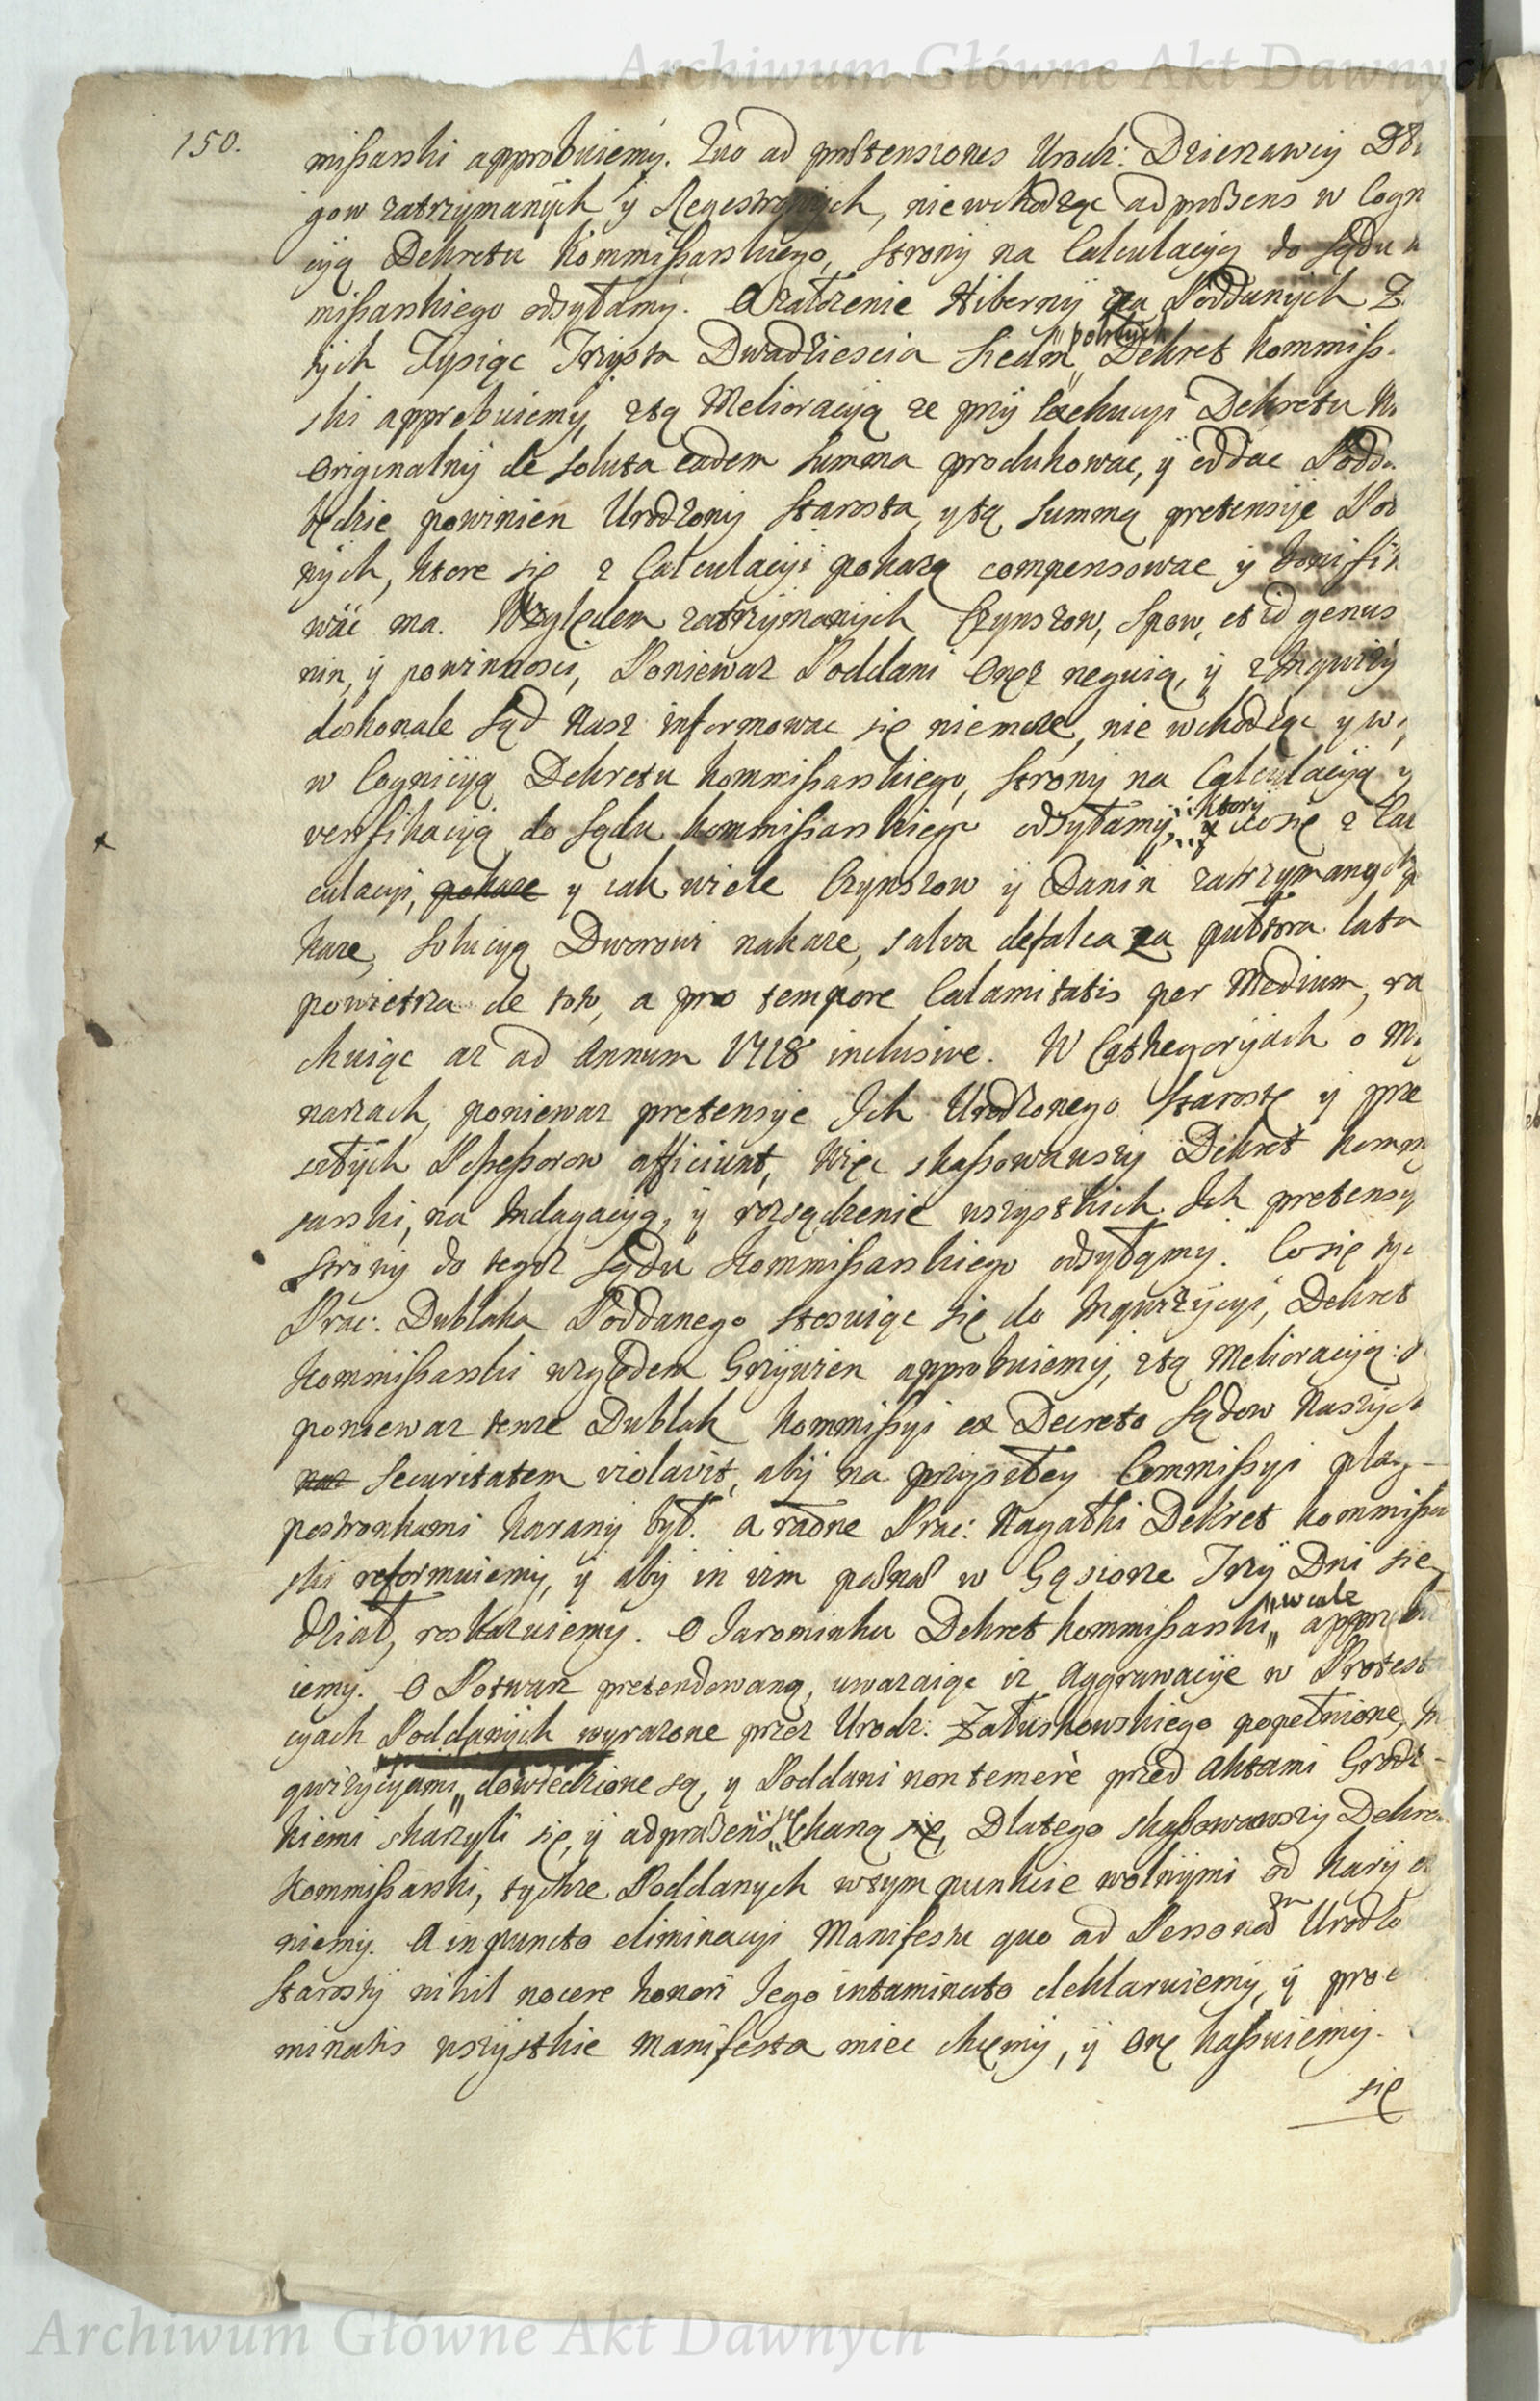 Archiwum Główne Akt Dawnych
150.
missarski approbuiemy. Quo ad prætensiones Urodz: Dzierzawcy
gow zatrzymanych y Regestrowych, nie wchodząc ad præsens w Cogni
cyą Dekretu Kommissarskiego, Strony na Calculacyą do Sądu
missarskiego odsyłamy. O załozenie Hiberny za Poddanych Z
tych Tysiąc Trzysta Dwadziescia Siedm „polskich„ Dekret Kommiss
ski approbuiemy, ztą Melioracyą ze przy Exekucyi Dekretu
Originalny de soluta eadem Summa produkowac, y oddac Podd
będzie powinien Urodzony Starosta, ytą Summą pretensye Pod
nych, ktore się z Calculacyi pokazą compensowac y bonifi
wac ma. Względem zatrzymanych Czynszow, Spow, et id genus
nin, y powinnosci, Poniewaz Poddani Onęz neguią, y z Inquizy
doskonale Sąd Nasz informowac się niemoze, nie wchodząc y w
w Cognicyą Dekretu Kommissarskiego, Strony na Calculacyą y
verifikacyą do Sądu Kommissarskiego odsyłamy, ktory y cosię z Cal
culacyi, pokaze y iak wiele Czynszow y Danin zatrzymanych
kaze, Solucyą Dworowi nakaze, salva defalca za pułtora lata
powietrza de toto, a pro tempore Calamitatis per Medium, ra
chuiąc az ad Annum 1718 inclusive. W Cathegoryach o My
narzach, poniewaz pretensye Ich Urodzonego Starostę y prze
szłych Possessorow afficiunt, Więc skassowawszy Dekret Komm
sarski, na Indagacyą, y rozsądzenie wszystkich Ich pretensy
Strony do tegoz Sądu Kommissarskiego odsyłamy. Cosię tyc
Prac: Dublaka Poddanego stosuiąc się do Inquizycyi, Dekret
Kommissarski względem Grzywien approbuiemy, ztą Melioracyą:
poniewaz tenze Dublak Kommissyi ex Decreto Sądow Naszych
Securitatem violavit, aby na przyszłey Commissyi plag
postronkami karany był. a radne Prac: Nagatki Dekret Kommissa
ski reformuiemy, y aby in vim w Gąsiorze Trzy Dni sie
dział, roskazuiemy. O Jarominku Dekret Kommissarski „wcale„ approbu
iemy. O Potwarz pretendowaną, uwazaiąc iz Aggrawacye w Protest
cyach Poddanych wyrazone przez Urodz: Załuskowskiego popełnione, In
quizycyami„ dowiedzione są, y Poddani non temerè przed Aktami Grodz-
kiemi skarzyli się, y ad præsens się, Dlatego skassowawszy Dekret
Kommissarski, tychze Poddanych wtym punkcie wolnymi od kary
niemy. A in puncto eliminacyi Manifestu quo ad Personam Urodzo
Starosty nihil nocere honori Jego intaminato deklaruiemy, y pro e
minatis wszystkie Manifesta miec chcemy, y Onę kassuiemy.
się
Archiwum Główne Akt Dawnych